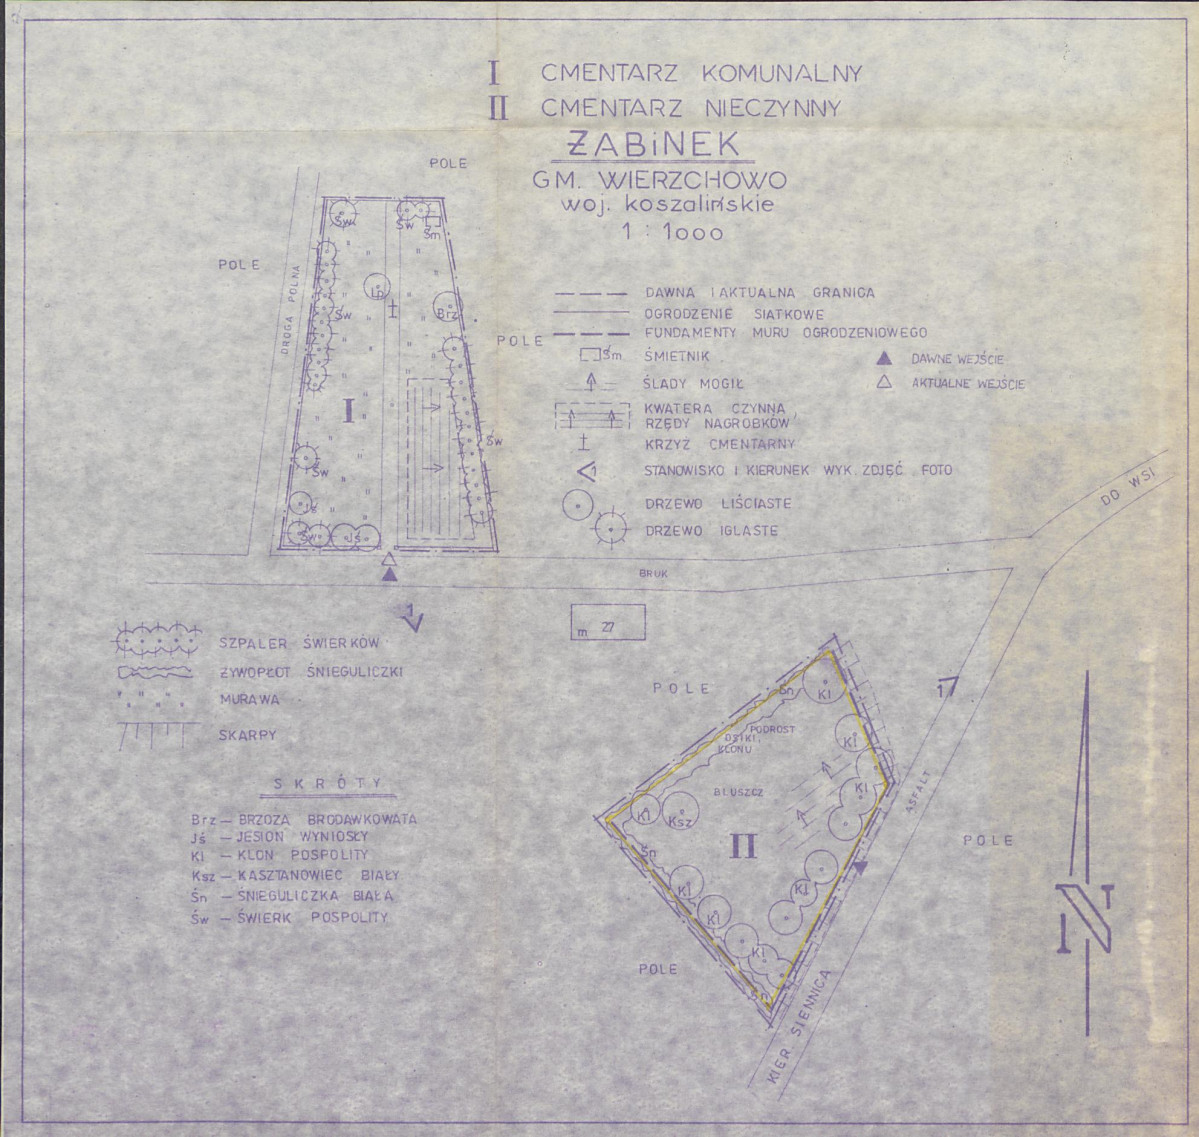 I CMENTARZ KOMUNALNY
II CMENTARZ NIECZYNNY
ŻABiNEK
GM. WIERZCHOWO
woj. koszalińskie
1 : 1ooo
POLE
POLE
DROGA POLNA
POLE
Św
Św
Śm
Lp
Św
Brz
I
Św
Św
Jś
Św
Jś
DAWNA I AKTUALNA GRANICA
OGRODZENIE SIATKOWE
FUNDAMENTY MURU OGRODZENIOWEGO
Śm ŚMIETNIK
ŚLADY MOGIŁ
KWATERA CZYNNA,
RZĘDY NAGROBKÓW
KRZYŻ CMENTARNY
1 STANOWISKO I KIERUNEK WYK. ZDJĘĆ FOTO
DRZEWO LIŚCIASTE
DRZEWO IGLASTE
DAWNE WEJŚCIE
AKTUALNE WEJŚCIE
DO WSI
BRUK
1
m 27
SZPALER ŚWIERKÓW
ŻYWOPŁOT ŚNIEGULICZKI
MURAWA
SKARPY
SKRÓTY
Brz — BRZOZA BRODAWKOWATA
Jś — JESION WYNIOSŁY
Kl — KLON POSPOLITY
Ksz — KASZTANOWIEC BIAŁY
Śn — ŚNIEGULICZKA BIAŁA
Św — ŚWIERK POSPOLITY
POLE
Śn
Kl
PODROST
KLONU
Kl
BLUSZCZ
Kl
Kl
Ksz
II
Śn
Kl
Kl
Kl
Kl
Śn
1
ASFALT
POLE
POLE
KIER. SIENNICA
N